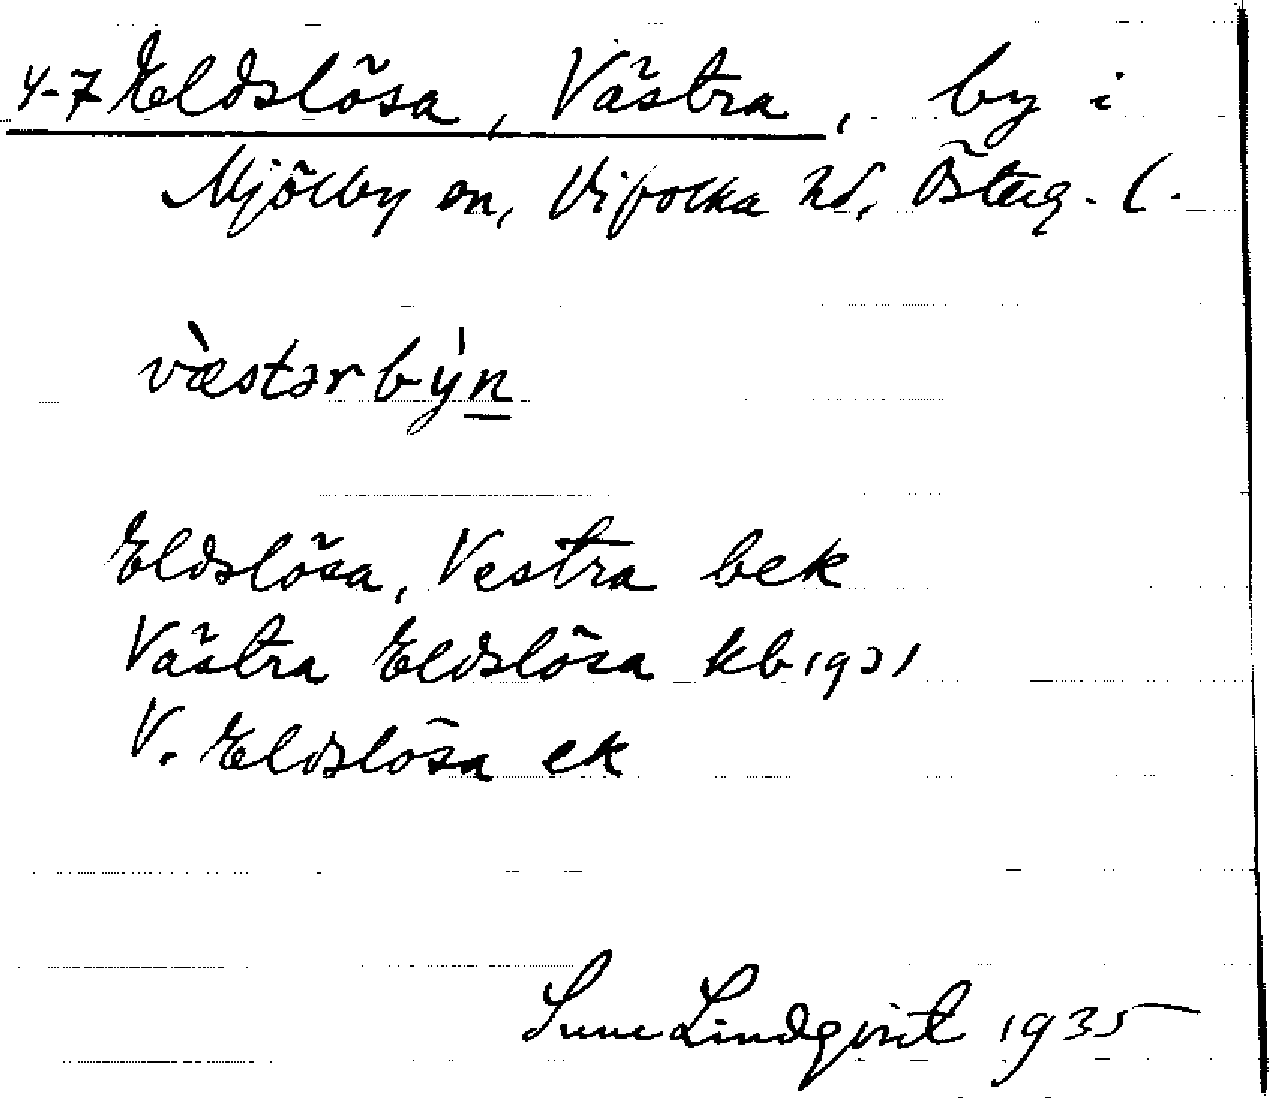 4-7 Eldslösa, Västra, by i
Mjölby sn, Vifolka hd, Österg. l.
væ̀stərbýn
Eldslösa, Vestra bek
Västra Eldslösa kb 1931
V. Eldslösa ek
Sune Lindqvist 1935